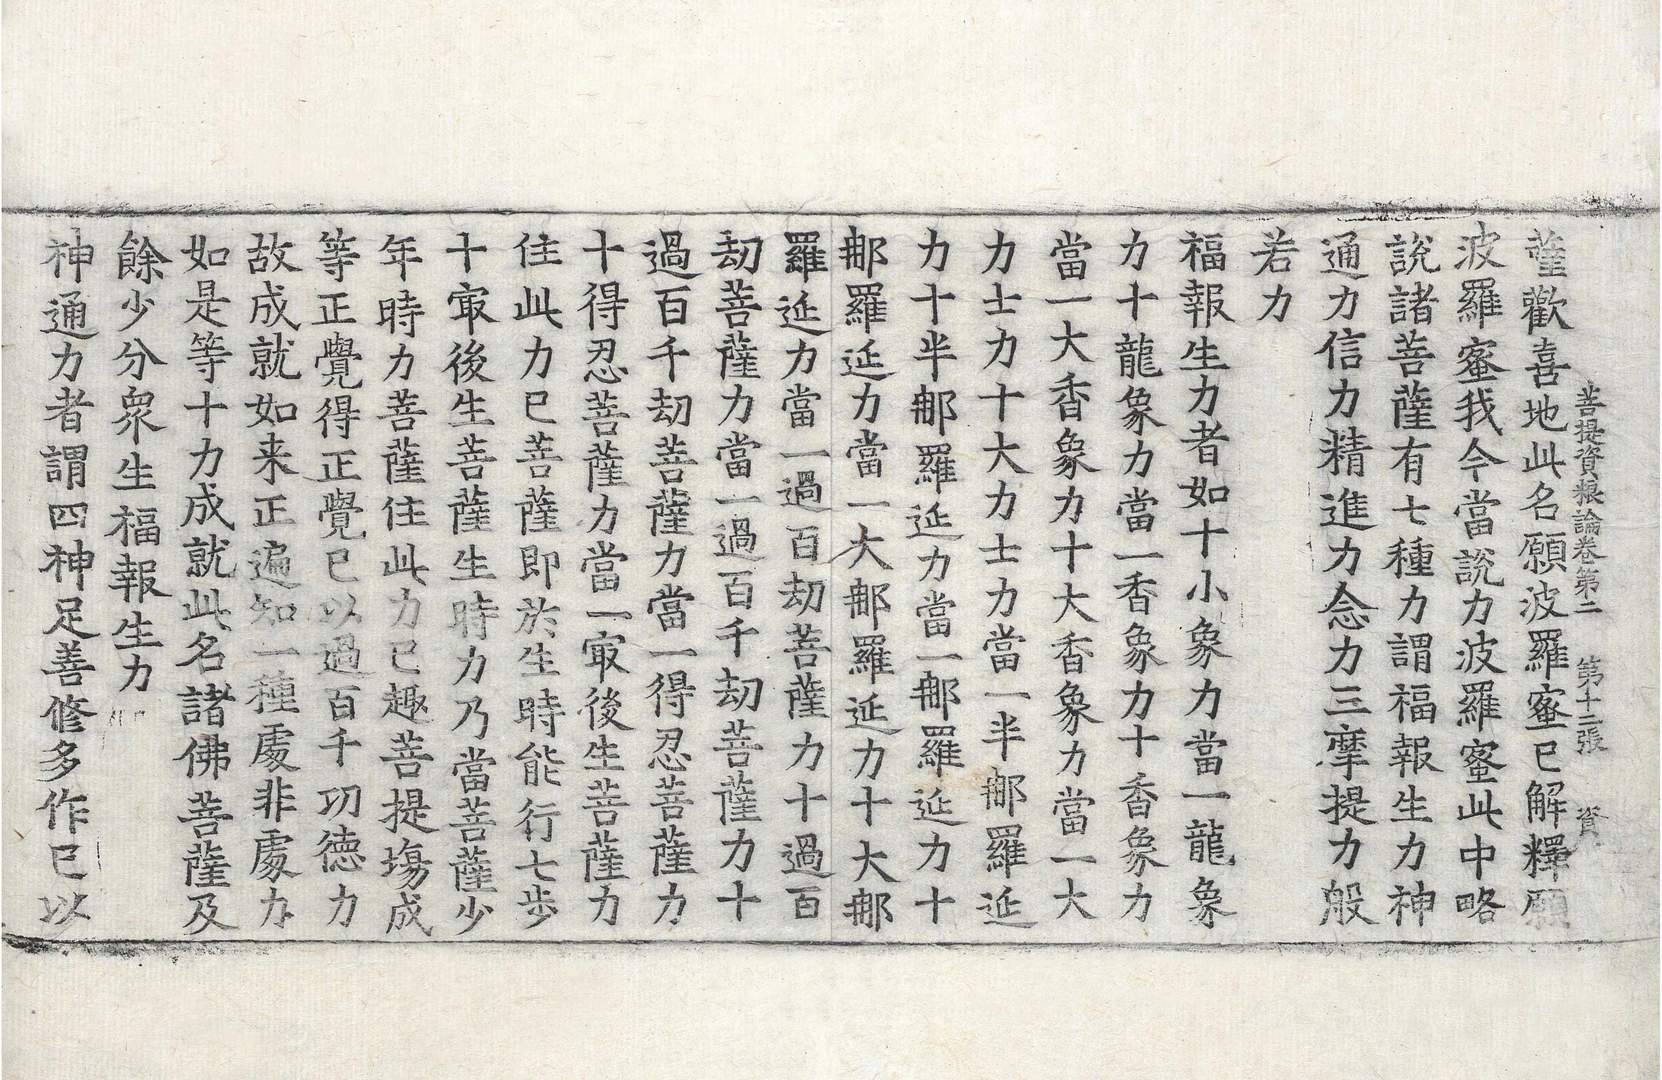 菩提資粮論卷第二　第十二張　資
薩歡喜地此名願波羅蜜已解釋願
波羅蜜我今當說力波羅蜜此中略
說諸菩薩有七種力謂福報生力神
通力信力精進力念力三摩提力般
若力
福報生力者如十小象力當一龍象
力十龍象力當一香象力十香象力
當一大香象力十大香象力當一大
力士力十大力士力當一半那羅延
力十半那羅延力當一那羅延力十
那羅延力當一大那羅延力十大那
羅延力當一過百劫菩薩力十過百
劫菩薩力當一過百千劫菩薩力十
過百千劫菩薩力當一得忍菩薩力
十得忍菩薩力當一㝡後生菩薩力
住此力已菩薩即於生時能行七步
十㝡後生菩薩生時力乃當菩薩少
年時力菩薩住此力已趣菩提場成
等正覺得正覺已以過百千功德力
故成就如来正遍知一種處非處力
如是等十力成就此名諸佛菩薩及
餘少分衆生福報生力
神通力者謂四神足善修多作已以